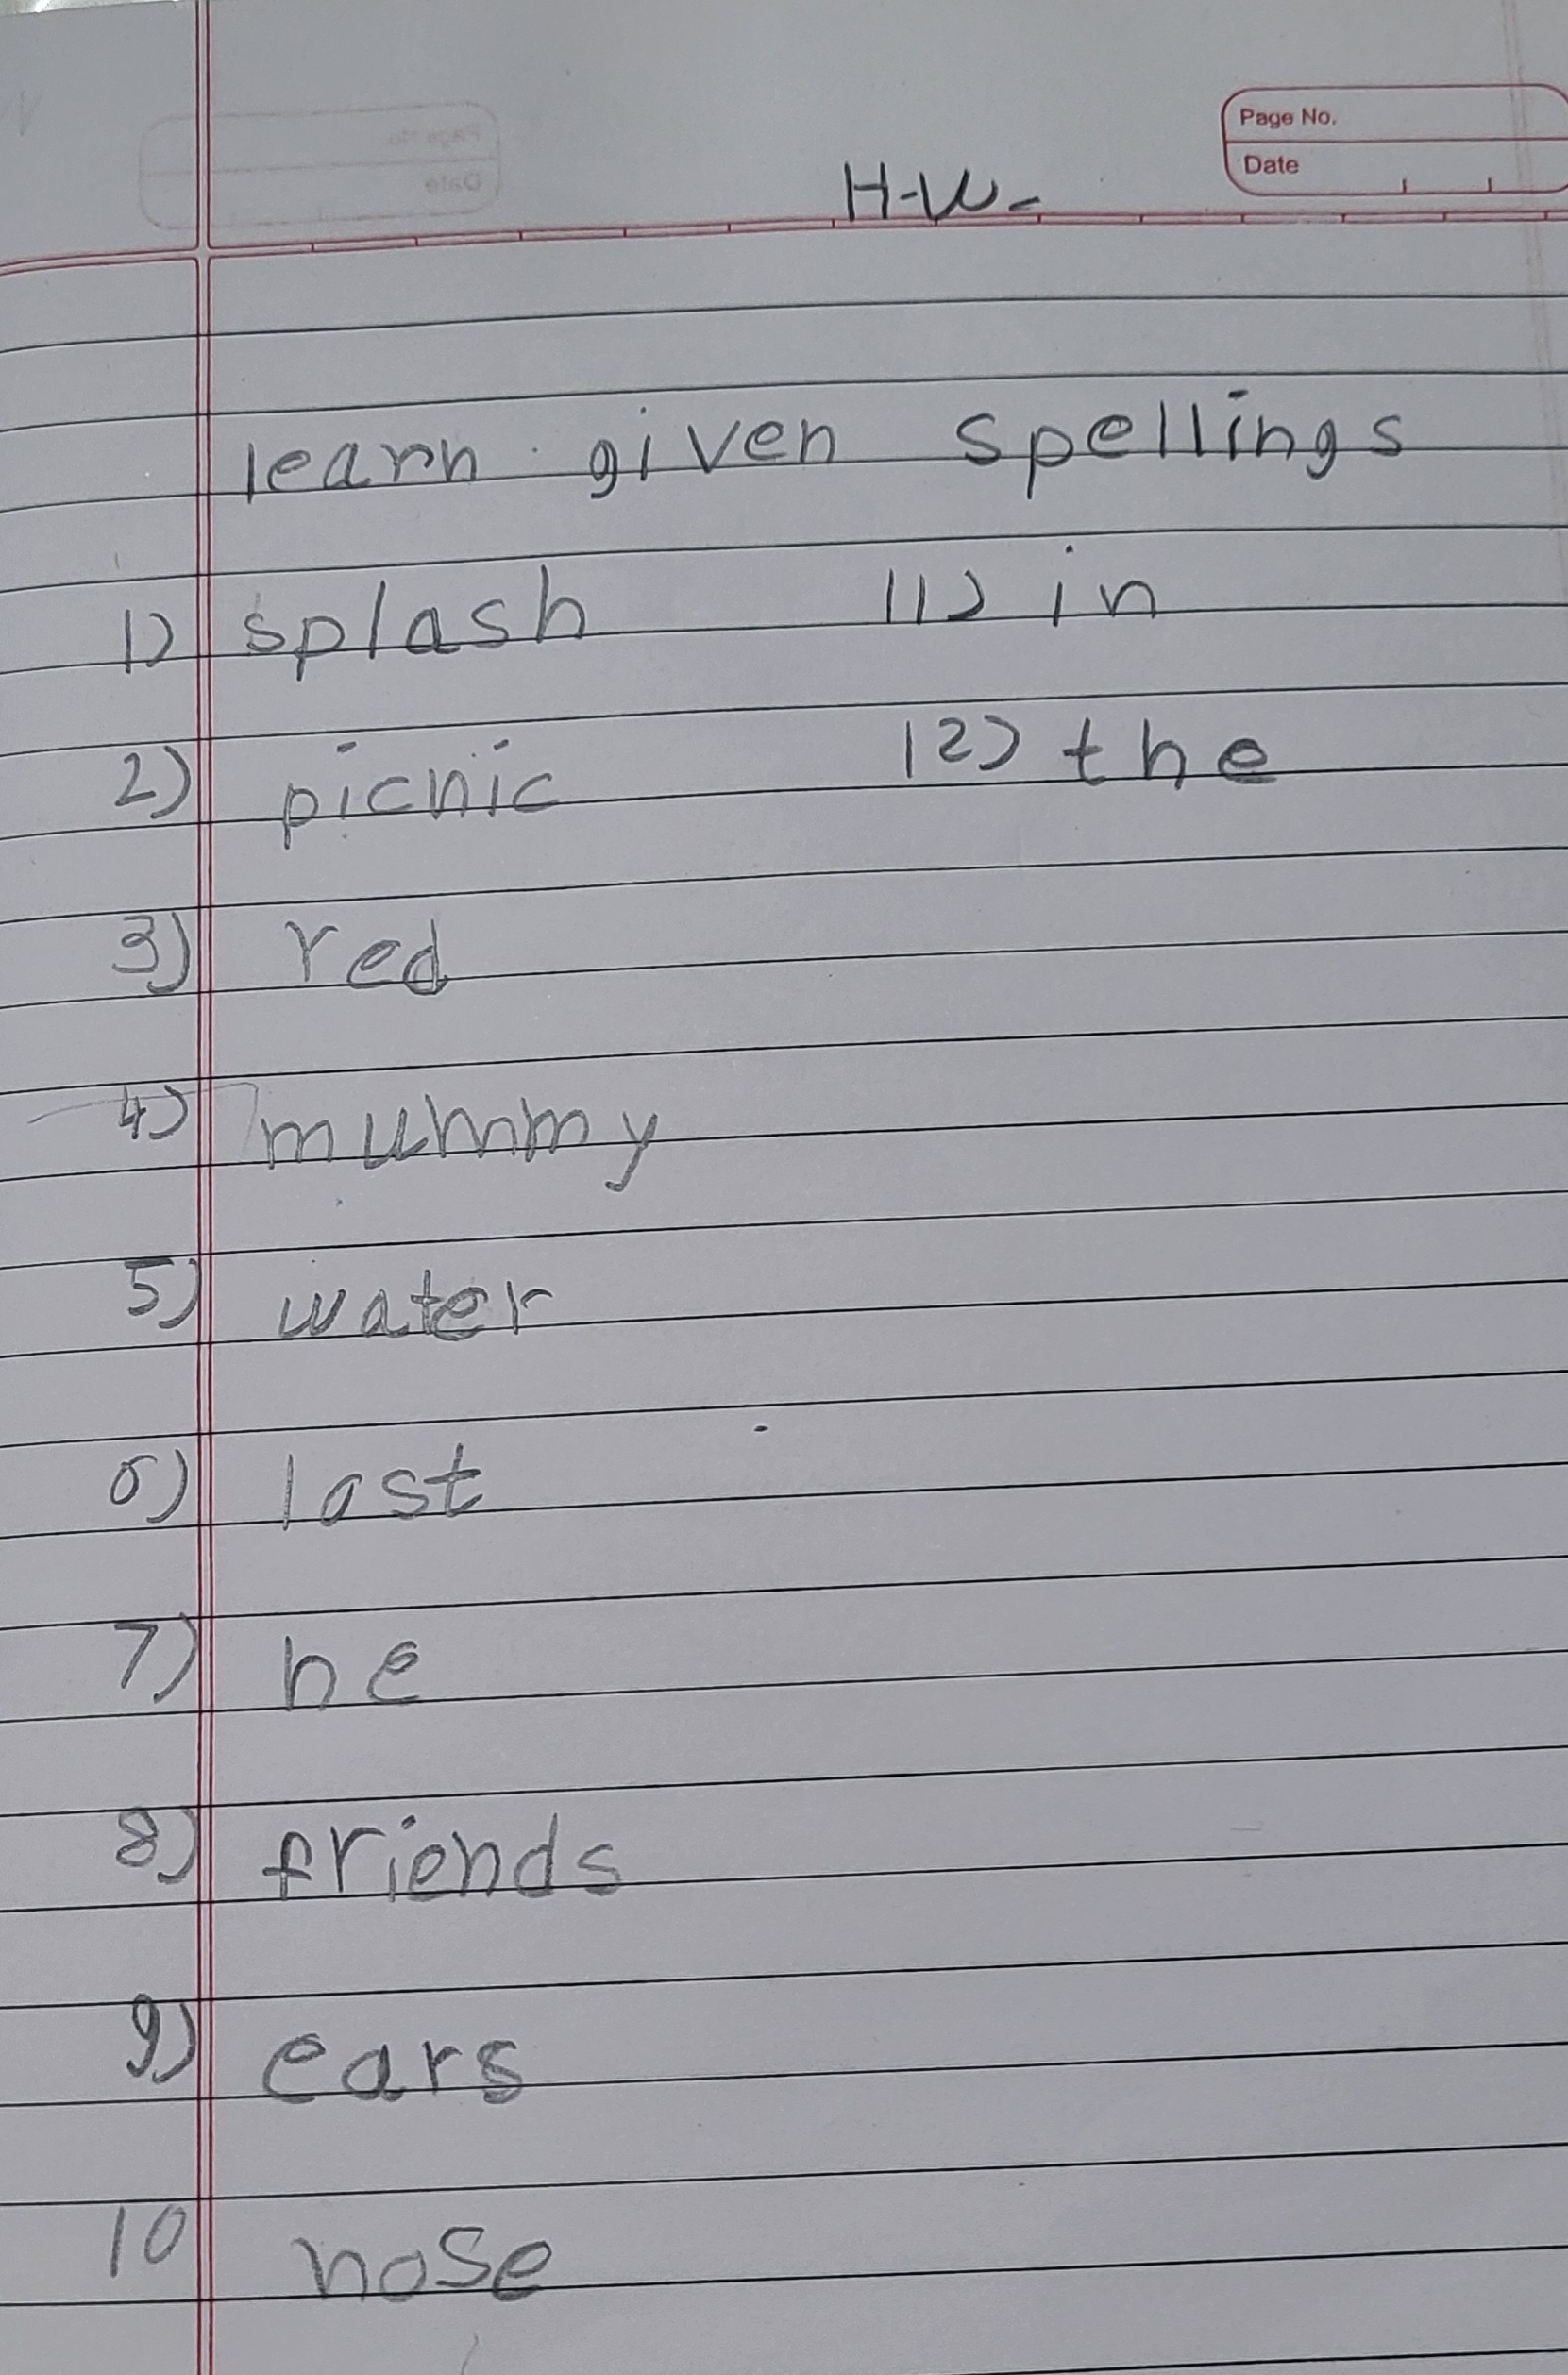 Page No.
Date
H.W.
learn given spellings
1) splash 11) in
2) picnic 12) the
3) red
4) mummy
5) water
6) last
7) he
8) friends
9) ears
10 nose